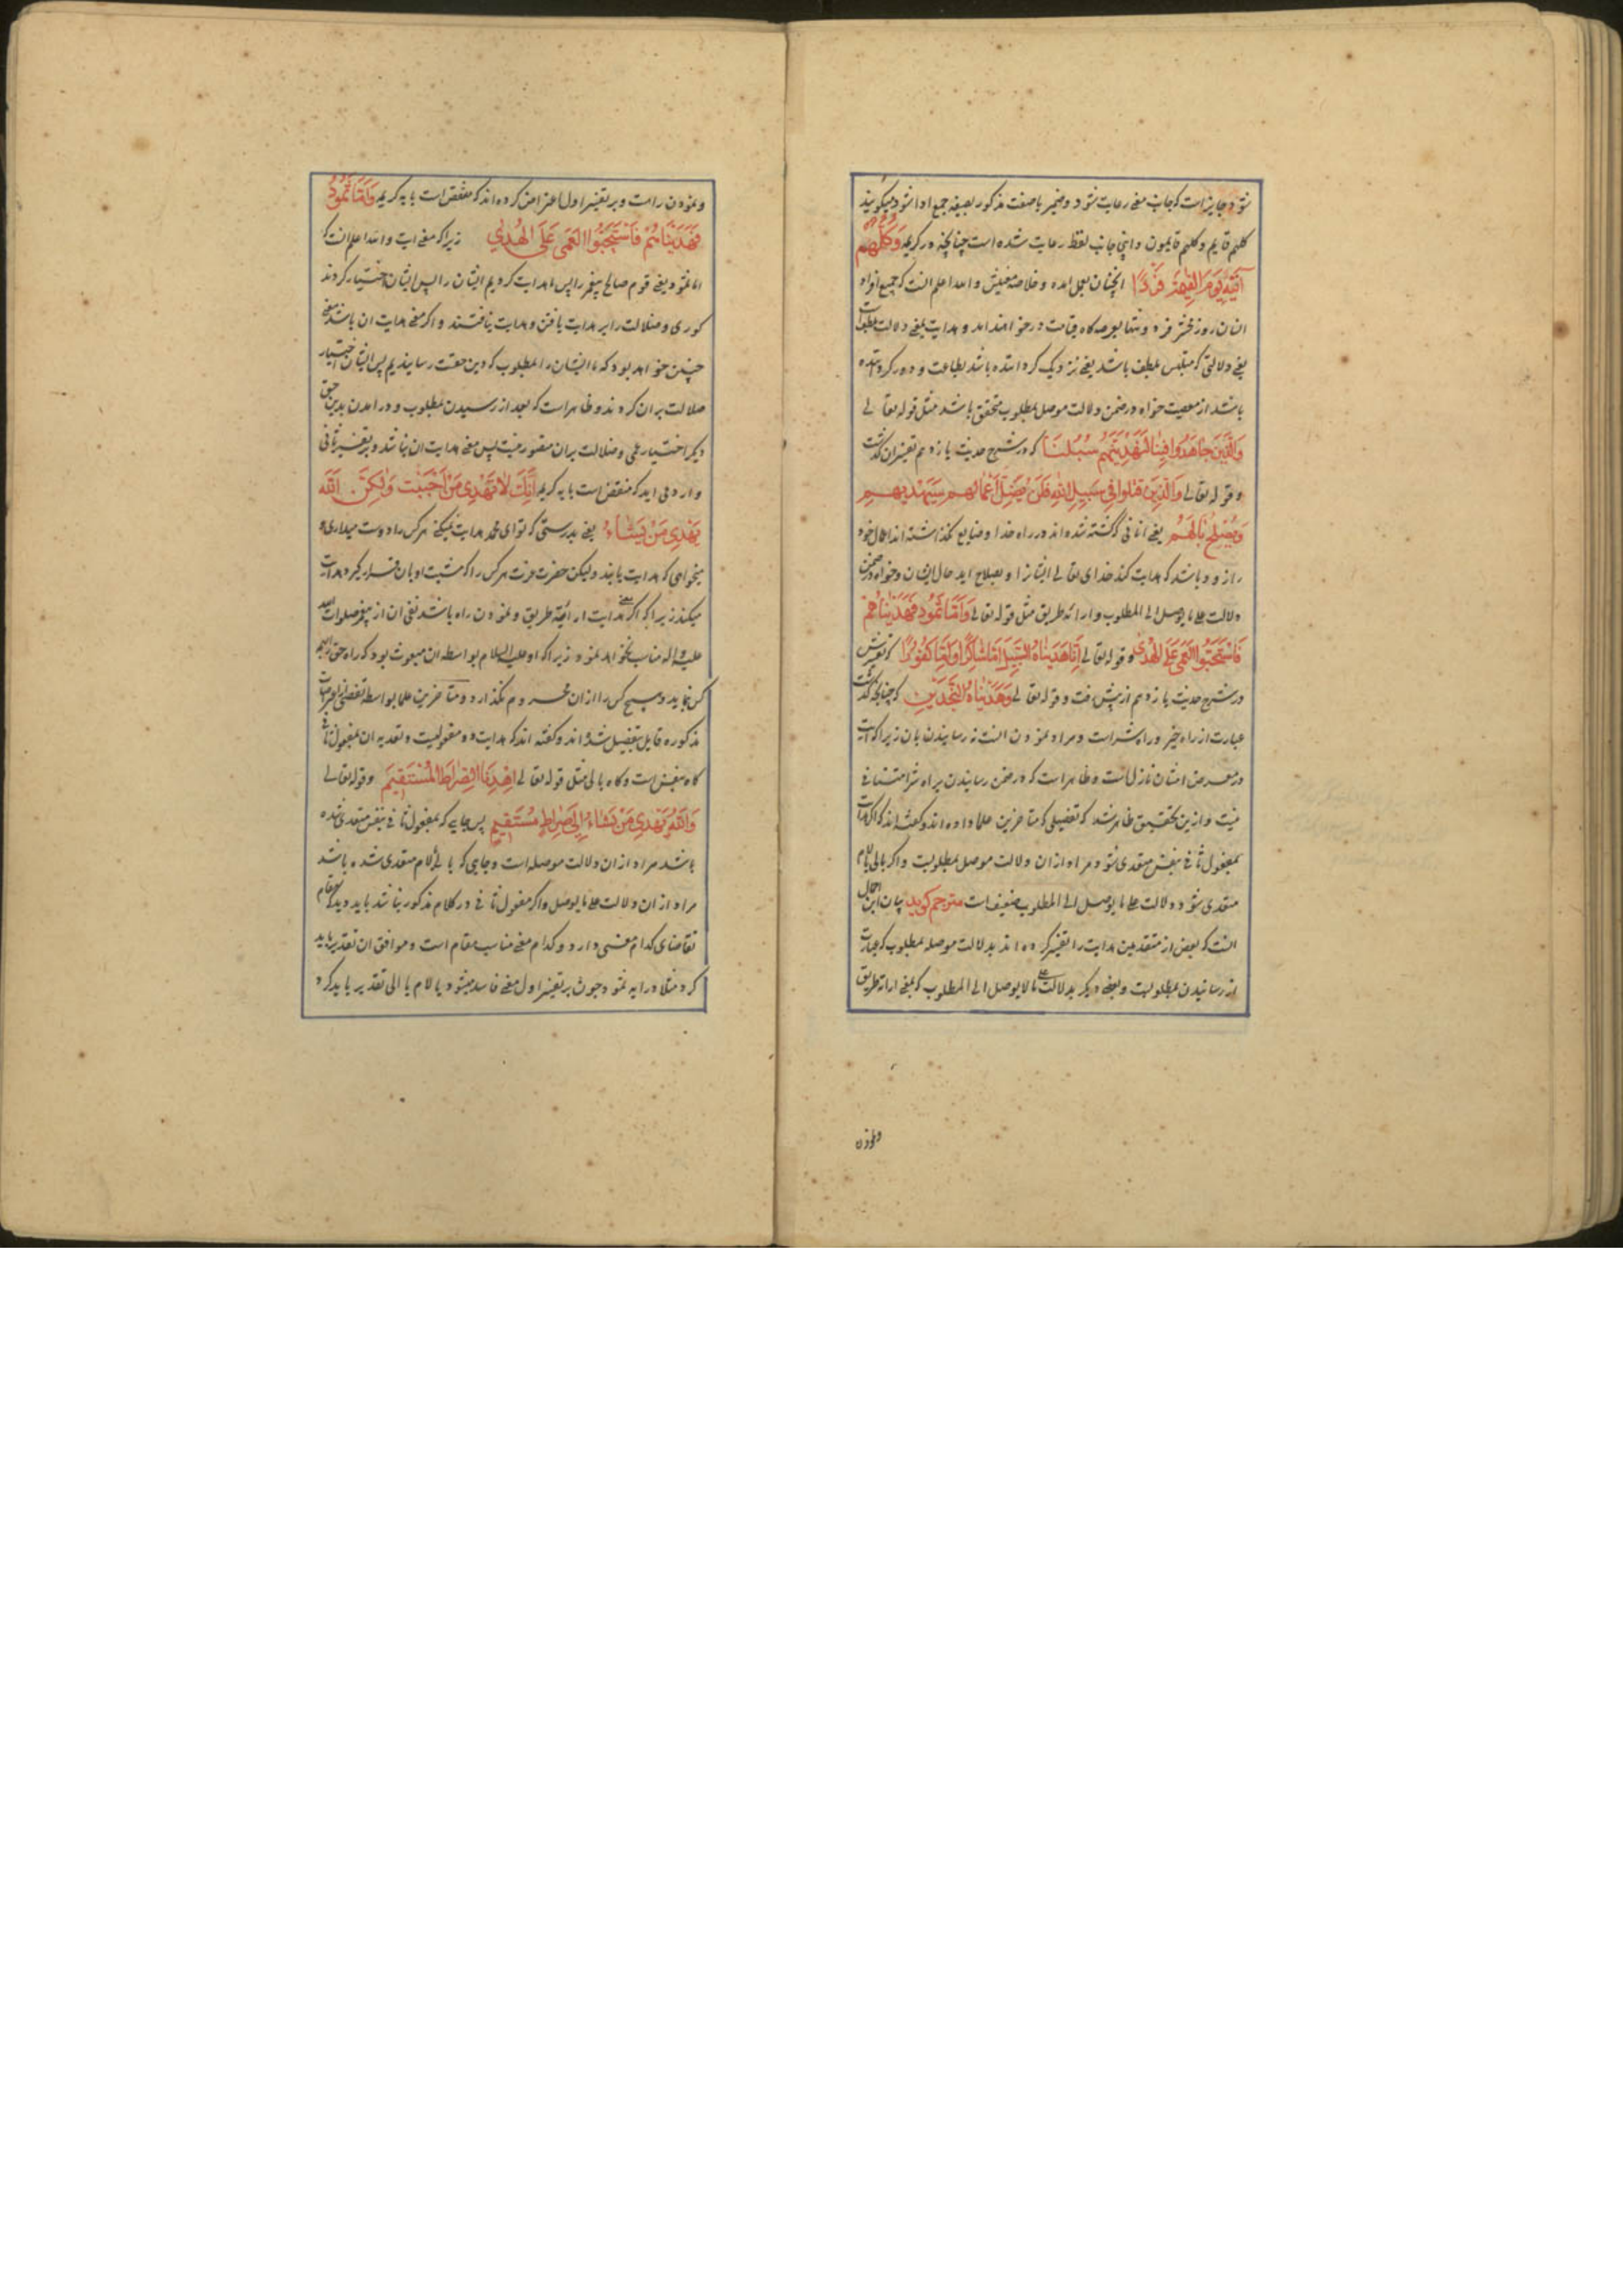 شود و جایز است که جانب معنی رعایت شود و ضمیر یا صفت مذکور بصیغه جمع ادا شود و میگویند
کلهم قایم و کلهم قایمون و اینجا جانب لفظ رعایت شده است چنانچه در کریمه وَكُلُّهُمْ
آتِيهِ يَوْمَ الْقِيٰمَةِ فَرْدًا انچنان بعمل امده و خلاصه معنیش و الله اعلم انست که جمیع افراد
انسان روز حشر فرد و تنها بعرصه کاه قیامت در خواهند امد و هدایت بمعنی دلالت بلطف است
یعنی دلالتی که متلبس بلطف باشد یعنی نزدیک کرداننده باشد بطاعت و دور کرداننده
باشد از معصیت خواه در ضمن دلالت موصل بمطلوب متحقق باشد مثل قوله تعالی
وَالَّذِينَ جَاهَدُوا فِينَا لَنَهْدِيَنَّهُمْ سُبُلَنَا که در شرح حدیث یازدهم تفسیر ان کذشت
و قوله تعالی وَالَّذِينَ قُتِلُوا فِي سَبِيلِ اللّٰهِ فَلَنْ يُضِلَّ أَعْمَالَهُمْ سَيَهْدِيهِمْ
وَيُصْلِحُ بَالَهُمْ یعنی انانی که کشته شده اند در راه خدا و ضایع نکذاشته اند اعمال خود
را زود باشد که هدایت کند خدای تعالی ایشانرا و بصلاح اید حال ایشان و خواه در ضمن
دلالت علی ما یوصل الی المطلوب و ارائه طریق مثل قوله تعالی وَأَمَّا ثَمُودُ فَهَدَيْنَاهُمْ
فَاسْتَحَبُّوا الْعَمَىٰ عَلَى الْهُدَىٰ و قوله تعالی إِنَّا هَدَيْنَاهُ السَّبِيلَ إِمَّا شَاكِرًا وَإِمَّا كَفُورًا که تفسیرش
در شرح حدیث یازدهم از پیش رفت و قوله تعالی وَهَدَيْنَاهُ النَّجْدَيْنِ که چنانچه کذشت
عبارت از راه خیر و راه شر است و مراد نمودن انست نه رسانیدن بان زیرا که ایت
در معرض امتنان نازل است و ظاهر است که در ضمن رسانیدن براه شر امتنانی
نیست و ازین تحقیق ظاهر شد که تفصیلی که متاخرین علما داده اند و کفته اند که اکر هدایت
بمفعول ثانی بنفس متعدی شود مراد از ان دلالت موصل بمطلوبست و اکر بالی یا لام
متعدی شود دلالت علی ما یوصل الی المطلوب ضعیف است مترجم کوید بیان این اجمال
انست که بعضی از متقدمین هدایت را تفسیر کرده اند بدلالت موصله بمطلوب که عبارت
از رسانیدن بمطلوبست و بعضی دیکر بدلالت علی ما یوصل الی المطلوب که بمعنی ارائه طریق
ونمودن
و نمودن راهست و بر تفسیر اول اعتراض کرده اند که منتقض است بایه کریمه وَأَمَّا ثَمُودُ
فَهَدَيْنَاهُمْ فَاسْتَحَبُّوا الْعَمَىٰ عَلَى الْهُدَىٰ زیرا که معنی ایت و الله اعلم انست که
اما ثمود یعنی قوم صالح پیغمبر را پس هدایت کردیم ایشان را پس ایشان اختیار کردند
کوری و ضلالت را بر هدایت یافتن و هدایت نیافتند و اکر معنی هدایت ان باشد معنی
چنین خواهد بود که ما ایشان را بمطلوب که دین حقست رسانیدیم پس ایشان اختیار
ضلالت بران کردند و ظاهر است که بعد از رسیدن بمطلوب و درامدن بدین حق
دیکر اختیار عمی و ضلالت بران متصور نیست پس معنی هدایت ان نباشد و بر تفسیر ثانی
وارد می اید که منتقض است بایه کریمه إِنَّكَ لَا تَهْدِي مَنْ أَحْبَبْتَ وَلٰكِنَّ اللّٰهَ
يَهْدِي مَنْ يَشَاءُ یعنی بدرستی که تو ای محمد هدایت نمیکنی هر کس را دوست میداری و
میخواهی که هدایت یابند ولیکن حضرت عزت هر کس را که مشیت او بان قرار کیرد هدایت
میکند زیرا که اکر معنی هدایت ارائه طریق و نمودن راه باشد نفی ان از پیغمبر صلوات الله
علیه و اله مناسب نخواهد نمود زیرا که او علیه السلام بواسطه ان مبعوث بود که راه حق را بهمه
کس نماید و هیچ کس را از ان محروم نکذارد و متاخرین علما بواسطه تفصی از اعتراضات
مذکوره قایل بتفصیل شده اند و کفته اند که هدایت دو مفعولیست و تعدیه ان بمفعول ثانی
کاه بنفس است و کاه بالی مثل قوله تعالی اهْدِنَا الصِّرَاطَ الْمُسْتَقِيمَ و قوله تعالی
وَاللّٰهُ يَهْدِي مَنْ يَشَاءُ إِلَىٰ صِرَاطٍ مُسْتَقِيمٍ پس جایی که بمفعول ثانی بنفس متعدی شده
باشد مراد از ان دلالت موصله است و جایی که بالی یا لام متعدی شده باشد
مراد از ان دلالت علی ما یوصل و اکر مفعول ثانی در کلام مذکور نباشد باید دید که مقام
تقاضای کدام معنی دارد و کدام معنی مناسب مقام است و موافق ان تقدیر باید
کرد مثلا در ایه ثمود چون بر تفسیر اول معنی فاسد میشود یا لام یا الی تقدیر باید کرد